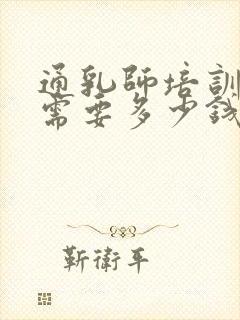 通乳師培訓
需要多少錢
靳衛平